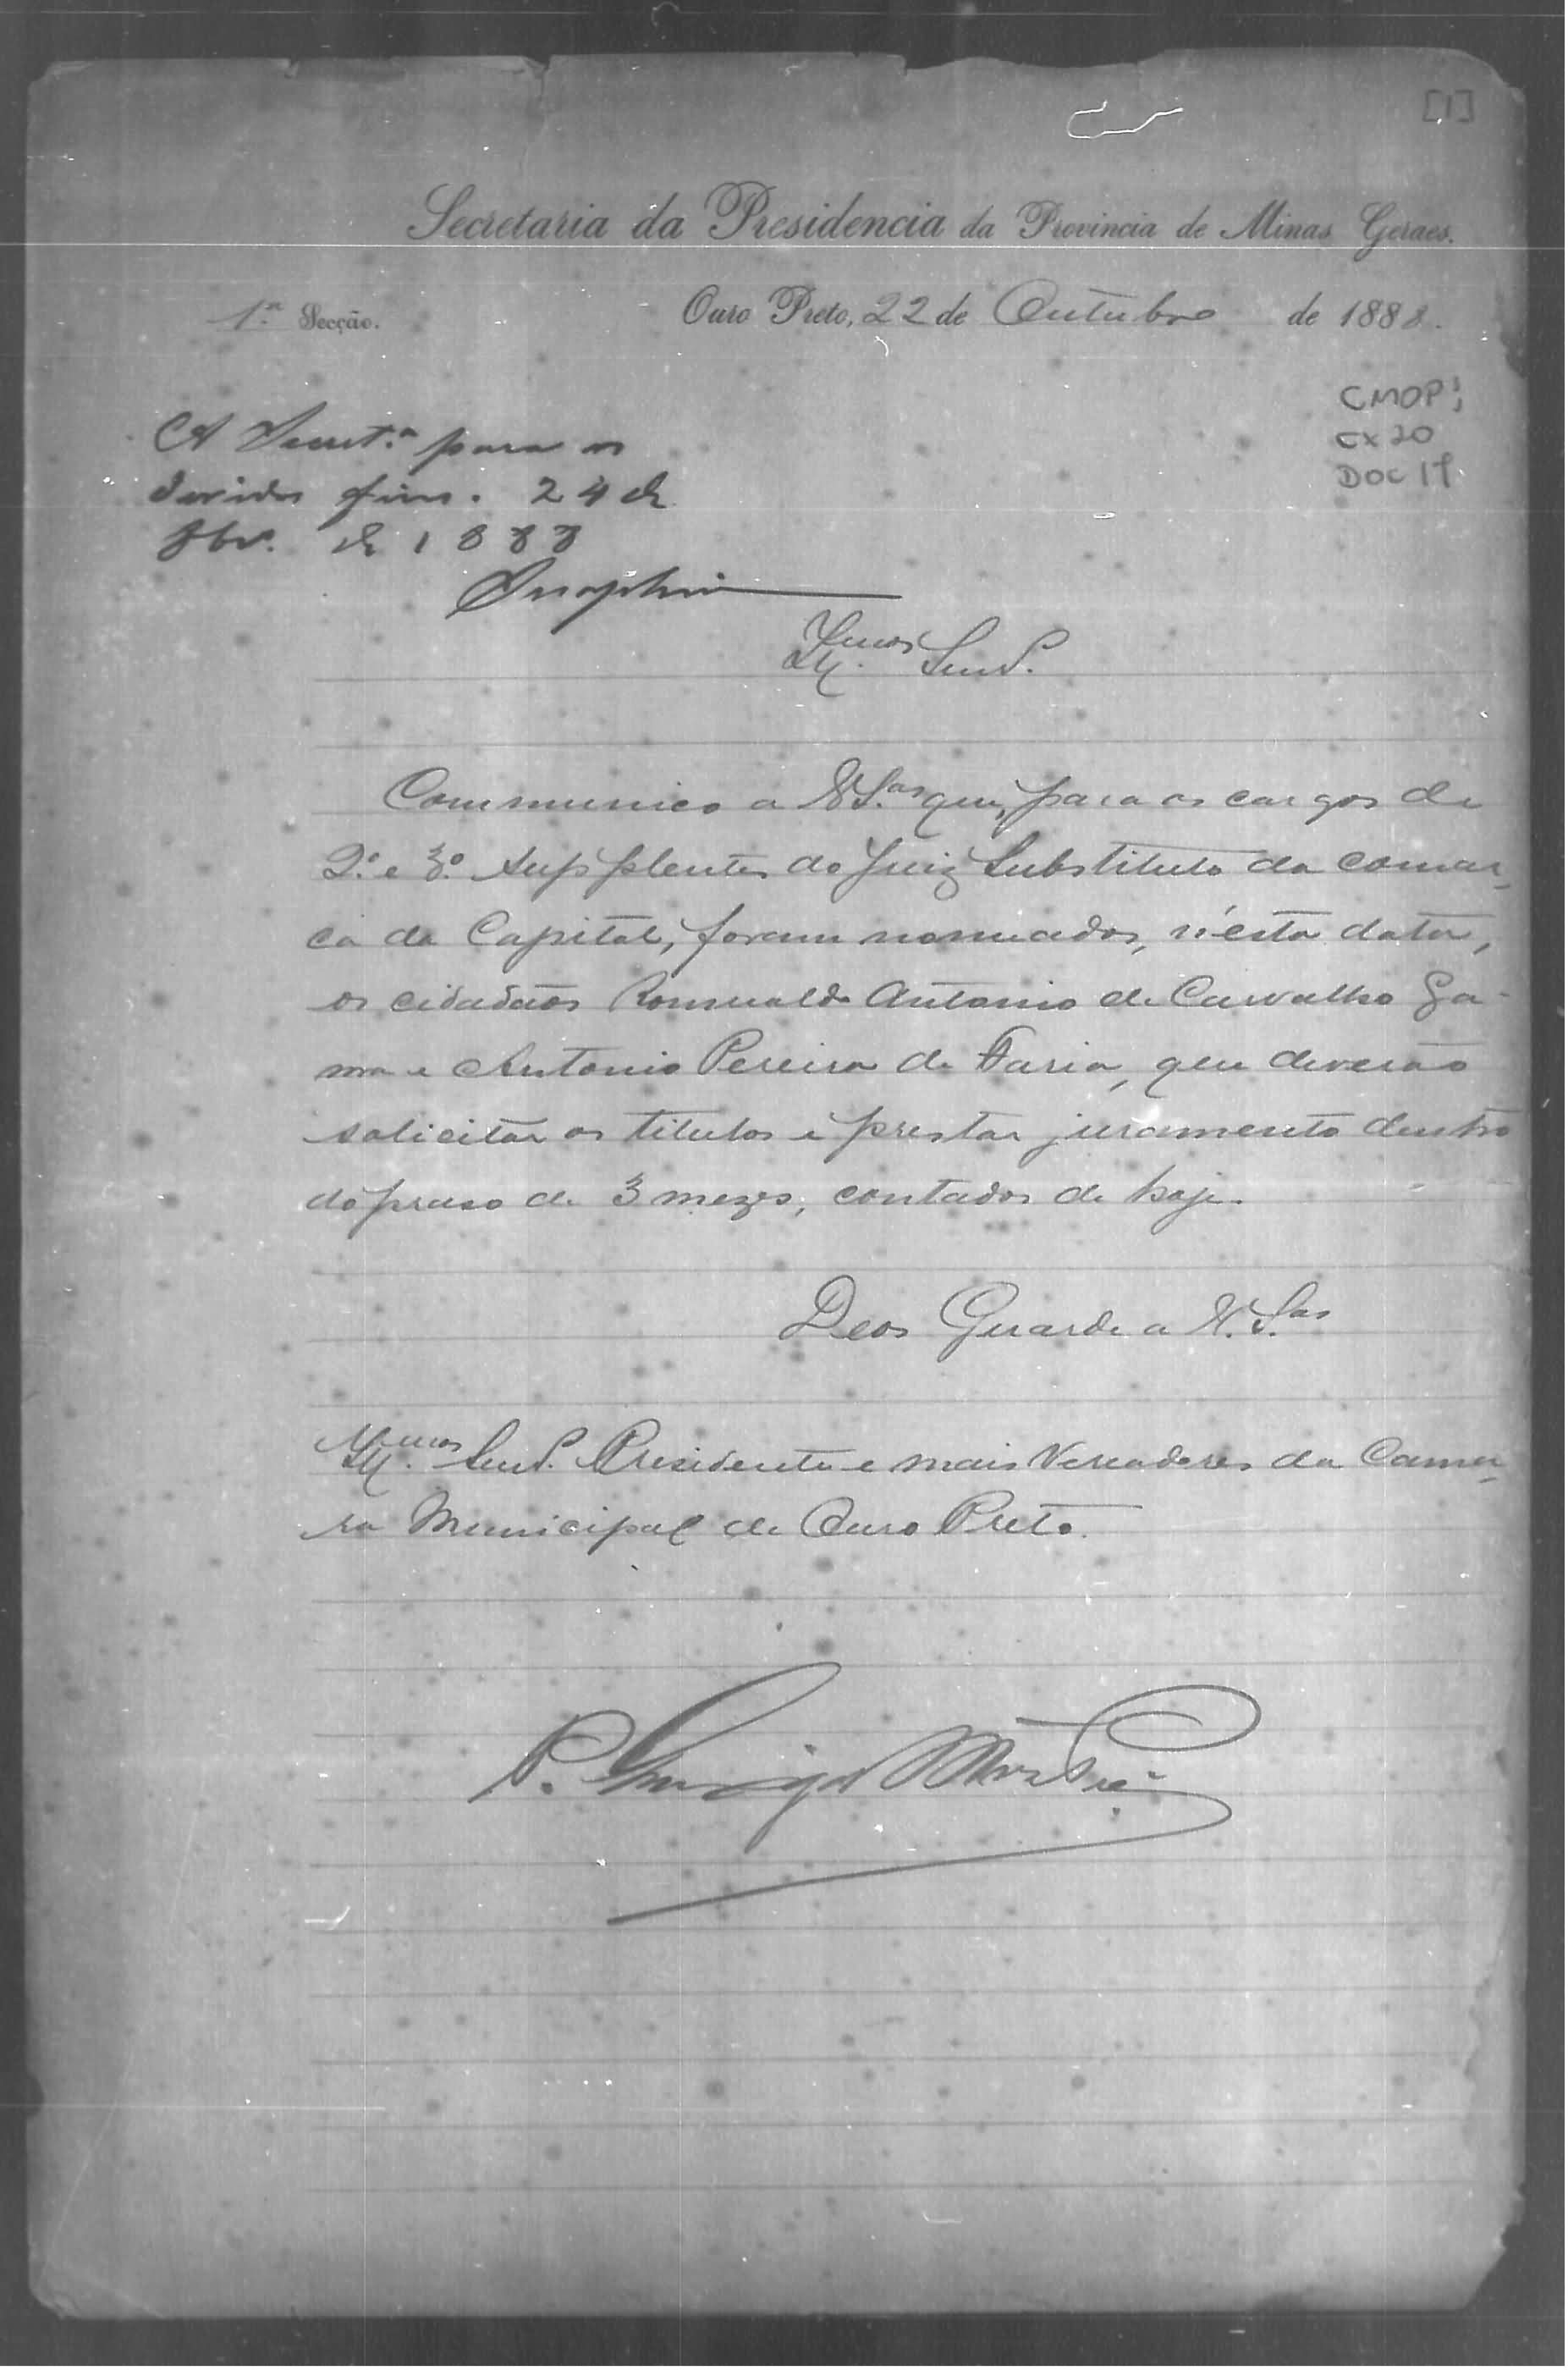 [1]
Secretaria da Presidencia da Provincia de Minas Geraes.
1.ª Secção.
Ouro Preto, 22 de Outubro de 1888.
CMOP;
CX 20
DOC 17
A Secret.ª para os
devidos fins. 24 de
8br.º de 1888
Ill.mos Snrs.
Communico a VS.as que, para os cargos de
2.º e 3.º supplentes do Juiz Substituto da comar-
ca da Capital, foram nomeados, n'esta data,
os cidadãos Romualdo Antonio de Carvalho Ga-
ma e Antonio Pereira de Faria, que deverão
solicitar os titulos e prestar juramento dentro
do praso de 3 mezes, contados de hoje.
Deos Guarde a V.S.as
Ill.mos Snrs. Presidente e mais Vereadores da Cama-
ra Municipal de Ouro Preto.